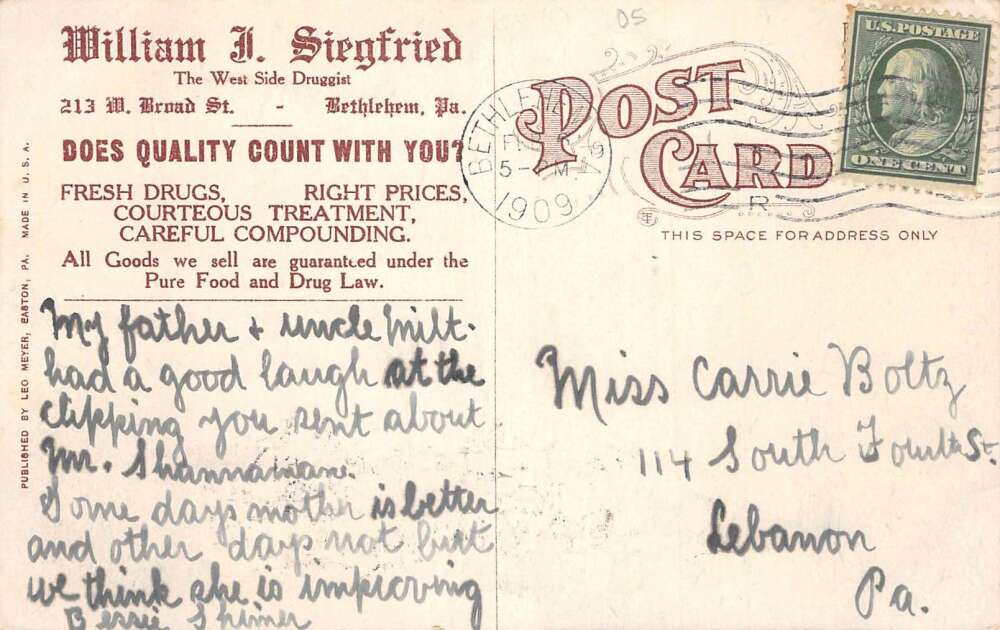 William J. Siegfried
The West Side Druggist
213 W. Broad St. - Bethlehem, Pa.
DOES QUALITY COUNT WITH YOU?
FRESH DRUGS, RIGHT PRICES,
COURTEOUS TREATMENT,
CAREFUL COMPOUNDING.
All Goods we sell are guaranteed under the
Pure Food and Drug Law.
My father & uncle Milt.
had a good laugh at the
clipping you sent about
Mr. Shannamane.
Some days mother is better
and other days not but
we think she is improving
Bessie Shimer
PUBLISHED BY LEO MEYER, EASTON, PA. MADE IN U.S.A.
05
POST
CARD
THIS SPACE FOR ADDRESS ONLY
BETHLEHEM
5- M
1909
R
U.S. POSTAGE
ONE CENT
Miss Carrie Boltz
114 South Fourth St.
Lebanon
Pa.